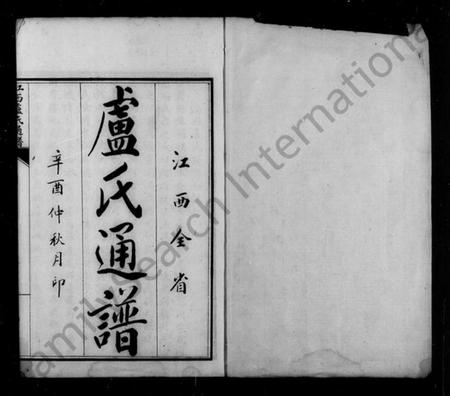 江西全省
盧氏通譜
辛酉仲秋月印
江西盧氏通譜
Family Search International